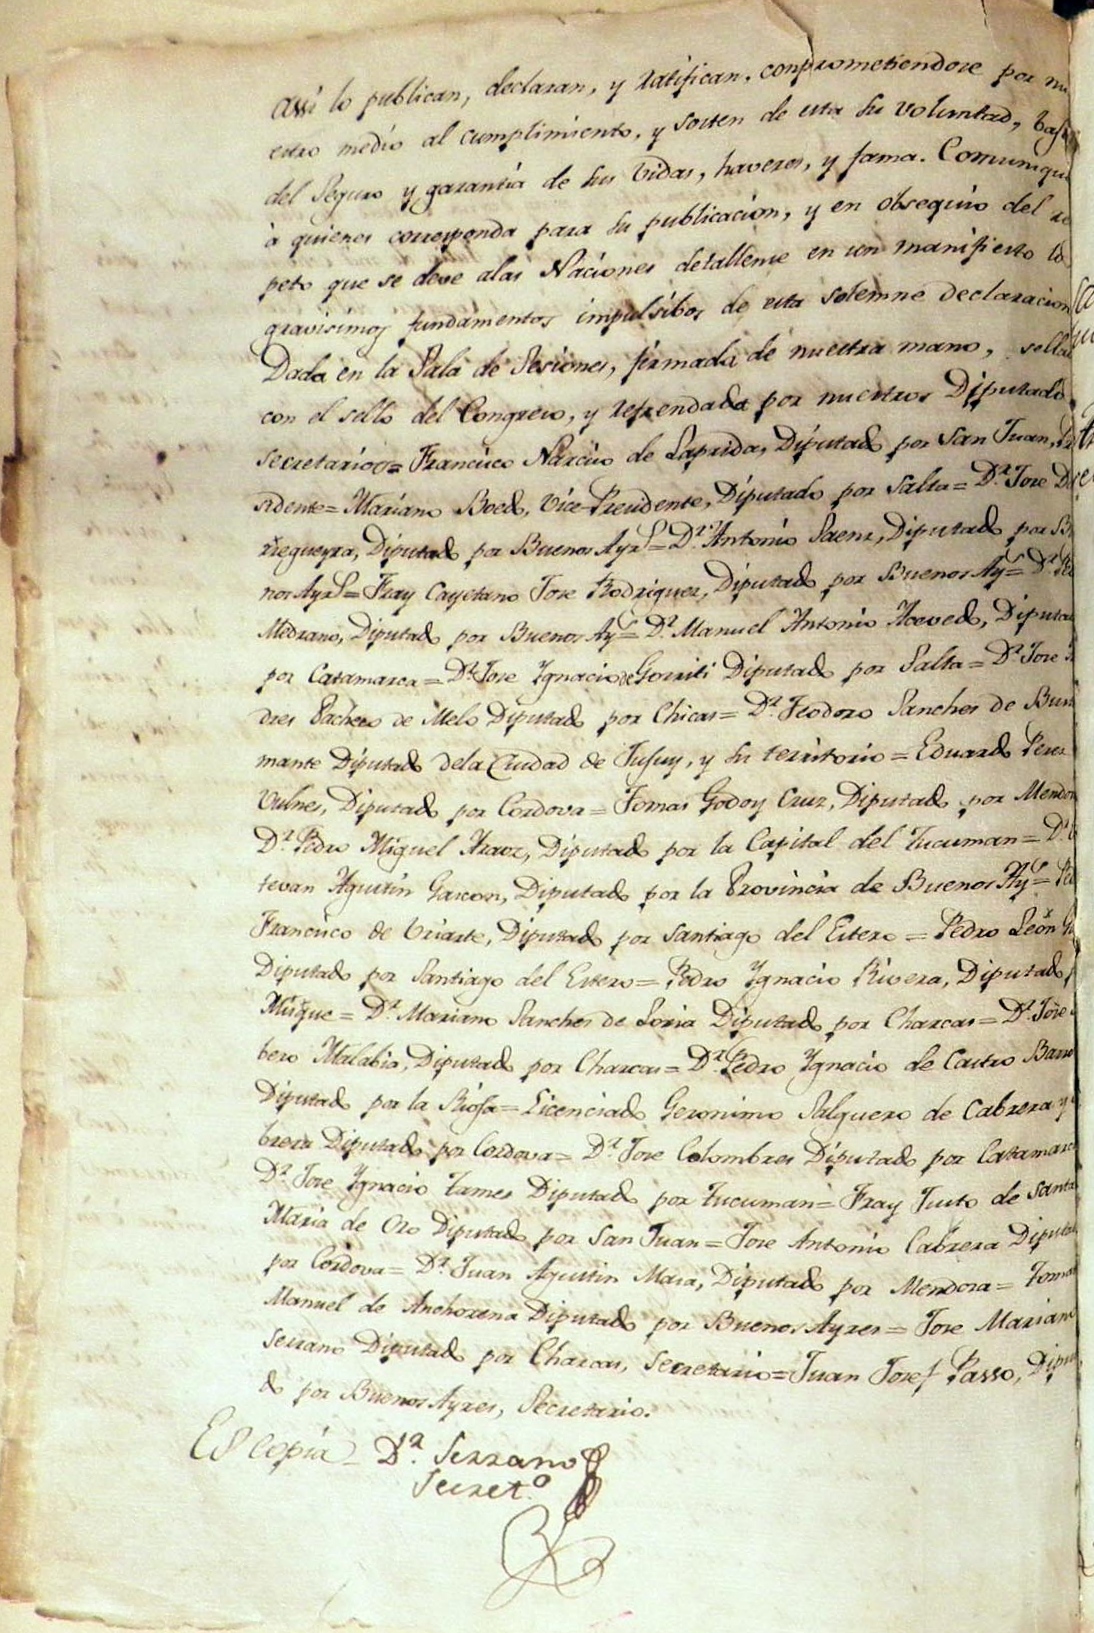 assi lo publican, declaran, y ratifican, conprometiendose por nu
estro medio al cumplimiento, y sosten de esta su voluntad, baxo
del Seguro y garantia de sus vidas, haveres, y fama. Comuniquese
à quienes corresponda para su publicacion, y en obsequio del res
peto que se deve alas Naciones detallense en un manifiesto los
gravisimos fundamentos impulsibos de esta solemne declaracion
Dada en la Sala de Sesiones, firmada de nuestra mano, sellada
con el sello del Congreso, y refrendada por nuestros Diputados
secretarios= Francisco Narciso de Laprida, Diputado por San Juan, Pre
sidente= Mariano Boedo, Vice-Presidente, Diputado por Salta= D.r Jose Da
rregueyra, Diputado por Buenos Ayr.s= D.r Antonio Saenz, Diputado por Bue
nos Ayr.s= Fray Cayetano Jose Rodriguez, Diputado por Buenos Ay.s= D.r Pedro
Medrano, Diputado por Buenos Ay.s= D.r Manuel Antonio Acevedo, Diputado
por Catamarca= D.r Jose Ygnacio de Gorriti Diputado por Salta= D.r Jose An
dres Pacheco de Melo Diputado por Chicas= D.r Teodoro Sanches de Busta
mante Diputado dela Ciudad de Jujuy, y su territorio= Eduardo Perez
Vulnes, Diputado por Cordova= Tomas Godoy Cruz, Diputado por Mendoza
D.r Pedro Miguel Araoz, Diputado por la Capital del Tucuman= D.r Es
tevan Agustin Gascon, Diputado por la Provincia de Buenos Ay.s= Pedro
Francisco de Uriarte, Diputado por Santiago del Estero= Pedro Leon Ga
Diputado por Santiago del Estero= Pedro Ygnacio Rivera, Diputado p
Misque= D.r Mariano Sanches de Loria Diputado por Charcas= D.r Jose
bero Malabia, Diputado por Charcas= D.r Pedro Ygnacio de Castro Barro
Diputado por la Rioja= Licenciado Geronimo Salguero de Cabrera y
brera Diputado por Cordova= D.r Jose Colombres Diputado por Catamarca
D.r Jose Ygnacio Tames Diputado por Tucuman= Fray Justo de Santa
Maria de Oro Diputado por San Juan= Jose Antonio Cabrera Diputado
por Cordova= D.r Juan Agustin Masa, Diputado por Mendoza= Tomas
Manuel de Anchorena Diputado por Buenos Ayres= Jose Mariano
Serrano Diputado por Charcas, Secretario= Juan Josef Passo, Diputa
do por Buenos Ayres, Secretario.
Es copia D.r Serrano
Secret.o